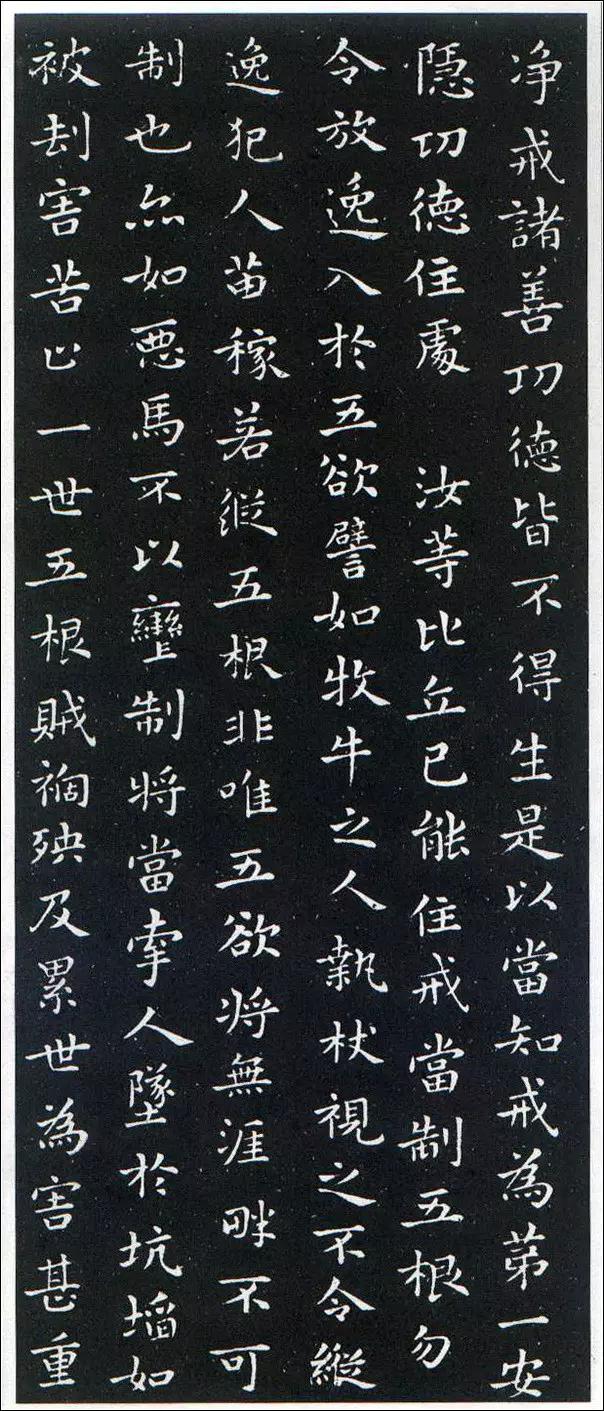 净戒諸善功德皆不得生是以當知戒為第一安
隱功德住處　汝等比丘已能住戒當制五根勿
令放逸入於五欲譬如牧牛之人執杖視之不令縱
逸犯人苗稼若縱五根非唯五欲將無涯畔不可
制也亦如惡馬不以轡制將當牽人墜於坑埳如
被劫害苦止一世五根賊禍殃及累世為害甚重